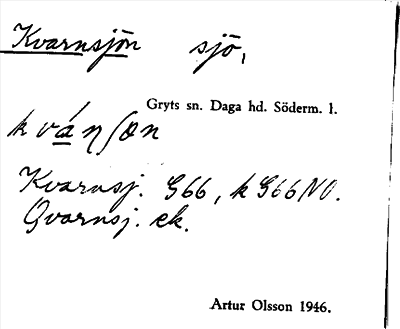 Kvarnsjön sjö,
Gryts sn. Daga hd. Söderm. l.
kvá̱ṇʃøn
Kvarnsj. G66, k G66 NO.
Qvarnsj. ek.
Artur Olsson 1946.